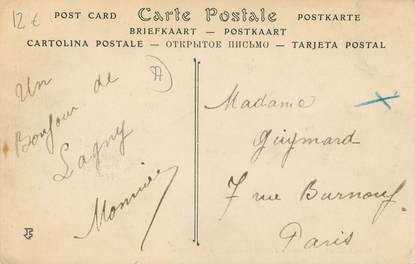 12 €
POST CARD Carte Postale POSTKARTE
BRIEFKAART — POSTKAART
CARTOLINA POSTALE — ОТКРЫТОЕ ПИСЬМО — TARJETA POSTAL
Un
Bonjour de
Lagny
Madame
Guymard
7 rue Burnouf
Paris